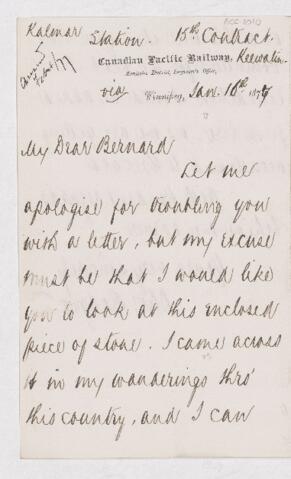 Kalmar Station. 15th Contract.
Canadian Pacific Railway, Keewatin.
Engineer's Office,
via Winnipeg, Jan. 16th 1879
My Dear Bernard
Let me
apologise for troubling you
with a letter, but my excuse
must be that I would like
you to look at this enclosed
piece of stone. I came across
it in my wanderings thro'
this country, and I can